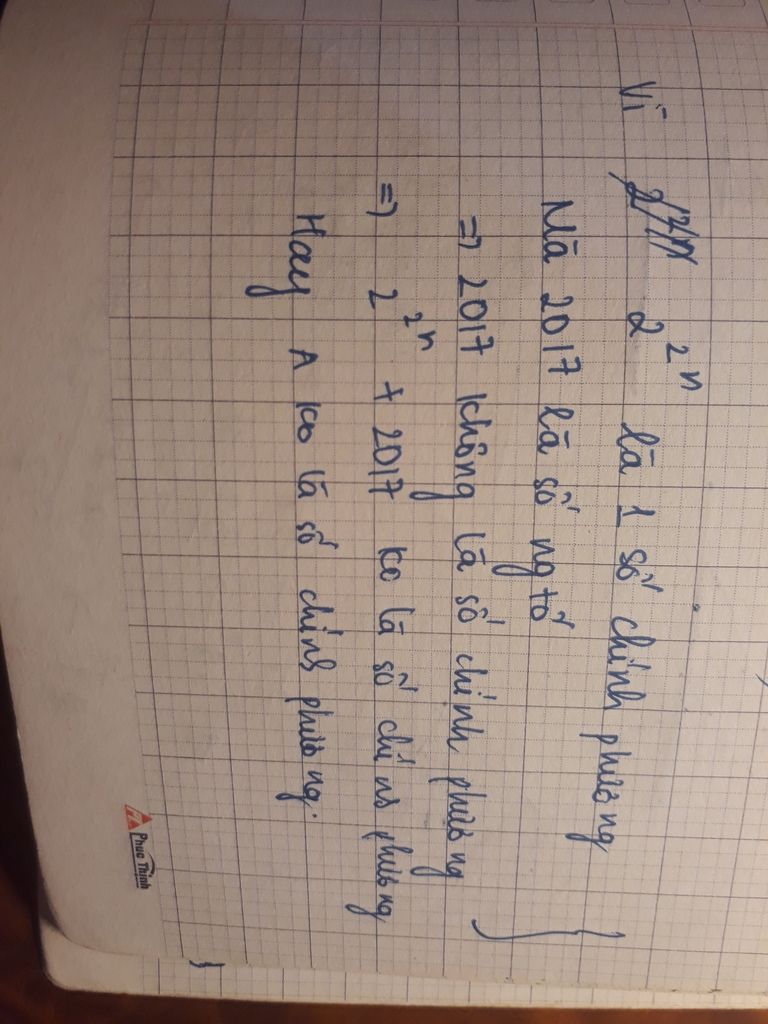 Vì 2²ⁿ 2²ⁿ là 1 số chính phương
Mà 2017 là số ng tố
=> 2017 không là số chính phương
=> 2²ⁿ + 2017 ko là số chính phương
Hay A ko là số chính phương.
Phuc Thinh